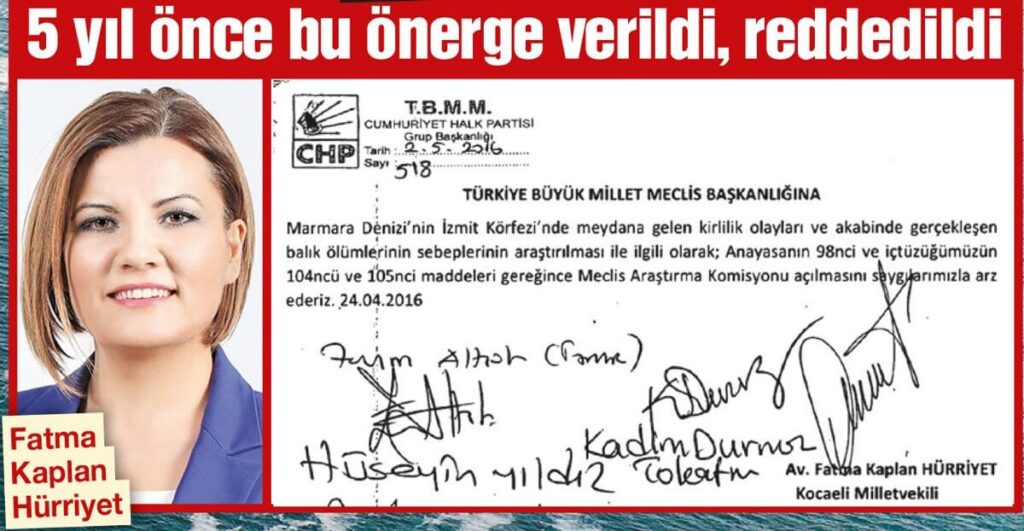 5 yıl önce bu önerge verildi, reddedildi
Fatma
Kaplan
Hürriyet
T.B.M.M.
CUMHURİYET HALK PARTİSİ
Grup Başkanlığı
CHP
Tarih : 2.5.2016
Sayı : 518
TÜRKİYE BÜYÜK MİLLET MECLİS BAŞKANLIĞINA
Marmara Denizi'nin İzmit Körfezi'nde meydana gelen kirlilik olayları ve akabinde gerçekleşen
balık ölümlerinin sebeplerinin araştırılması ile ilgili olarak; Anayasanın 98nci ve içtüzüğümüzün
104ncü ve 105nci maddeleri gereğince Meclis Araştırma Komisyonu açılmasını saygılarımızla arz
ederiz. 24.04.2016
Kadim Durmaz
Hüseyin Yıldız
Av. Fatma Kaplan HÜRRİYET
Kocaeli Milletvekili